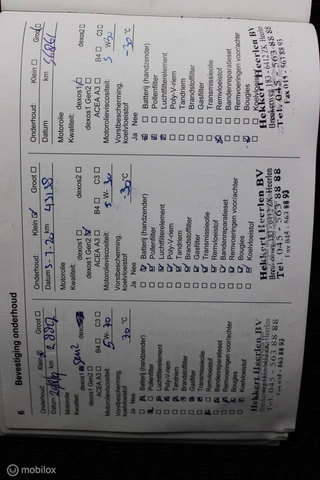 6
Bevestiging onderhoud
Onderhoud: Klein Groot
Datum km 28802
Motorolie
Kwaliteit: dexos2
dexos1 Gen2
ACEA A3 B4 C3
Motorolieviscositeit: 5 W-30
Vorstbescherming,
koelvloeistof 30 °C
Ja Nee
Batterij (handzender)
Pollenfilter
Luchtfilterelement
Poly-V-riem
Tandriem
Brandstoffilter
Gasfilter
Transmissieolie
Remvloeistof
Bandenreparatieset
Remvoeringen voor/achter
Bougies
Koelvloeistof
Hekkert Heerlen BV
Tel 045 - 563 88 88
Fax 045 - 563 88 93
Onderhoud: Klein Groot
Datum km
Motorolie
Kwaliteit: dexos2
dexos1 Gen2
ACEA A3 B4 C3
Motorolieviscositeit: 5 W- 30
Vorstbescherming,
koelvloeistof -30 °C
Ja Nee
Batterij (handzender)
Pollenfilter
Luchtfilterelement
Poly-V-riem
Tandriem
Brandstoffilter
Gasfilter
Transmissieolie
Remvloeistof
Bandenreparatieset
Remvoeringen voor/achter
Bougies
Koelvloeistof
Hekkert Heerlen BV
Tel 045 - 563 88 88
Fax 045 - 563 88 93
Onderhoud: Klein Groot
Datum km
Motorolie
Kwaliteit: dexos2
dexos1 Gen2
ACEA A3 B4 C3
Motorolieviscositeit: 5 W-30
Vorstbescherming,
koelvloeistof -30 °C
Ja Nee
Batterij (handzender)
Pollenfilter
Luchtfilterelement
Poly-V-riem
Tandriem
Brandstoffilter
Gasfilter
Transmissieolie
Remvloeistof
Bandenreparatieset
Remvoeringen voor/achter
Bougies
Koelvloeistof
Hekkert Heerlen BV
Tel. 045 - 563 88 88
Fax 045 - 563 88 93
© mobilox